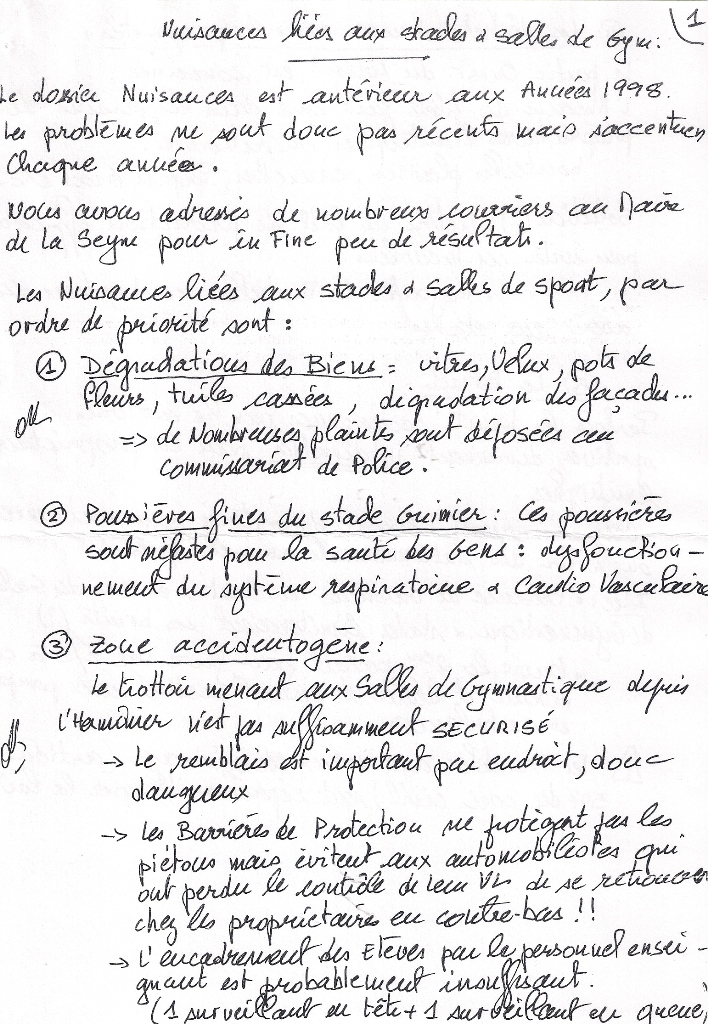 1
Nuisances liées aux stades & salles de Gym :
Le dossier Nuisances est antérieur aux Années 1998.
Les problèmes ne sont donc pas récents mais s'accentuen
Chaque année.
Nous avons adressés de nombreux courriers au Maire
de la Seyne pour in Fine peu de résultats.
Les Nuisances liées aux stades & salles de sport, par
ordre de priorité sont :
① Dégradations des Biens = vitres, Velux, pots de
fleurs, tuiles cassées, dégradation des façades...
=> de Nombreuses plaintes sont déposées au
commissariat de Police.
② Poussières fines du stade Guimier : Ces poussières
sont néfastes pour la santé des Gens : dysfonction-
nement du système respiratoire & Cardio Vasculaire
③ Zone accidentogène :
Le trottoir menant aux Salles de Gymnastique depuis
l'Hamonier n'est pas suffisamment SECURISÉ
→ Le remblais est important par endroit, donc
dangereux
→ Les Barrières de Protection ne protègent pas les
piétons mais évitent aux automobilistes qui
ont perdu le contrôle de leur VL de se retrouver
chez les propriétaires en contre-bas !!
→ L'encadrement des Elèves par le personnel ensei-
gnant est probablement insuffisant.
(1 surveillant en tête + 1 surveillant en queue,